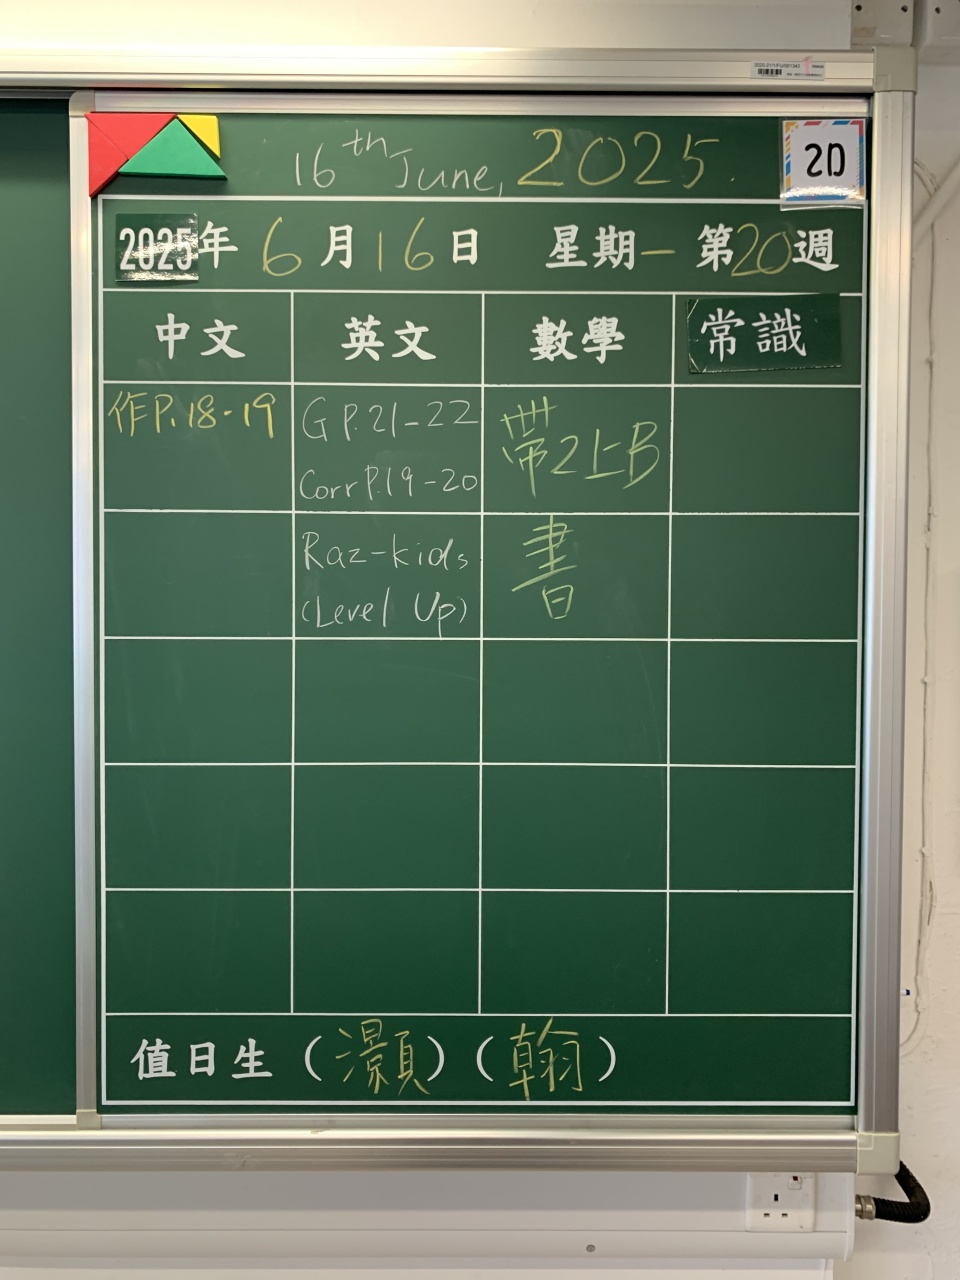 16th June, 2025.
2D
2025年 6月16日 星期一 第20週
中文 英文 數學 常識
作P.18-19
G P.21-22
Corr P.19-20
帶2上B
Raz-kids
(Level Up)
書
值日生 (灝) (翰)